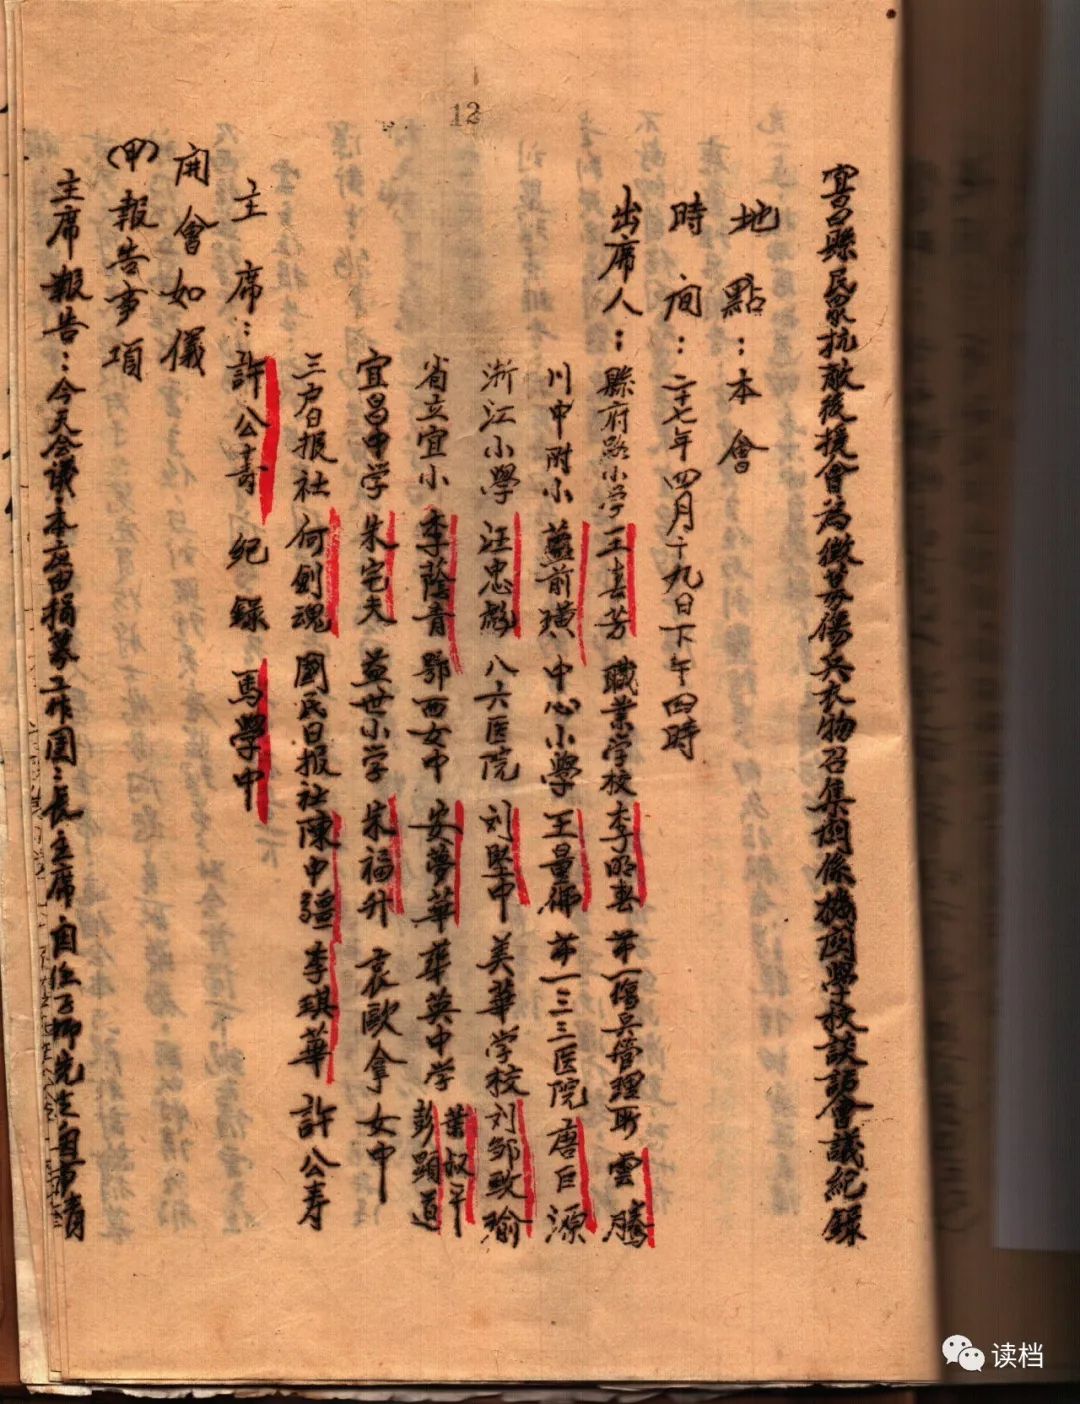 12
宜昌縣民衆抗敵後援會為徵募傷兵衣物召集關係機関學校談話會議紀錄
地點：本會
時間：二十七年四月十九日下午四時
出席人：縣府路小学 王喜芳 職業学校 李明春 第一傷兵管理所 雲騰
川中附小 藍前璜 中心小學 王量衡 第一三三医院 唐巨源
浙江小學 汪忠彪 八六医院 刘堅中 美華学校 刘邹致瑜
省立宜小 李蔭青 鄂西女中 安夢華 華英中学 葉叔平 彭顕道
宜昌中学 朱宅夫 益世小学 朱福升 哀歐拿女中
三户日报社 何劍魂 國民日报社 陳中疆 李琪華 許公寿
主席：許公壽 紀錄 馬學中
開會如儀
(甲)報告事項
主席報告：今天会議本應由捐募工作團 長主席
读档